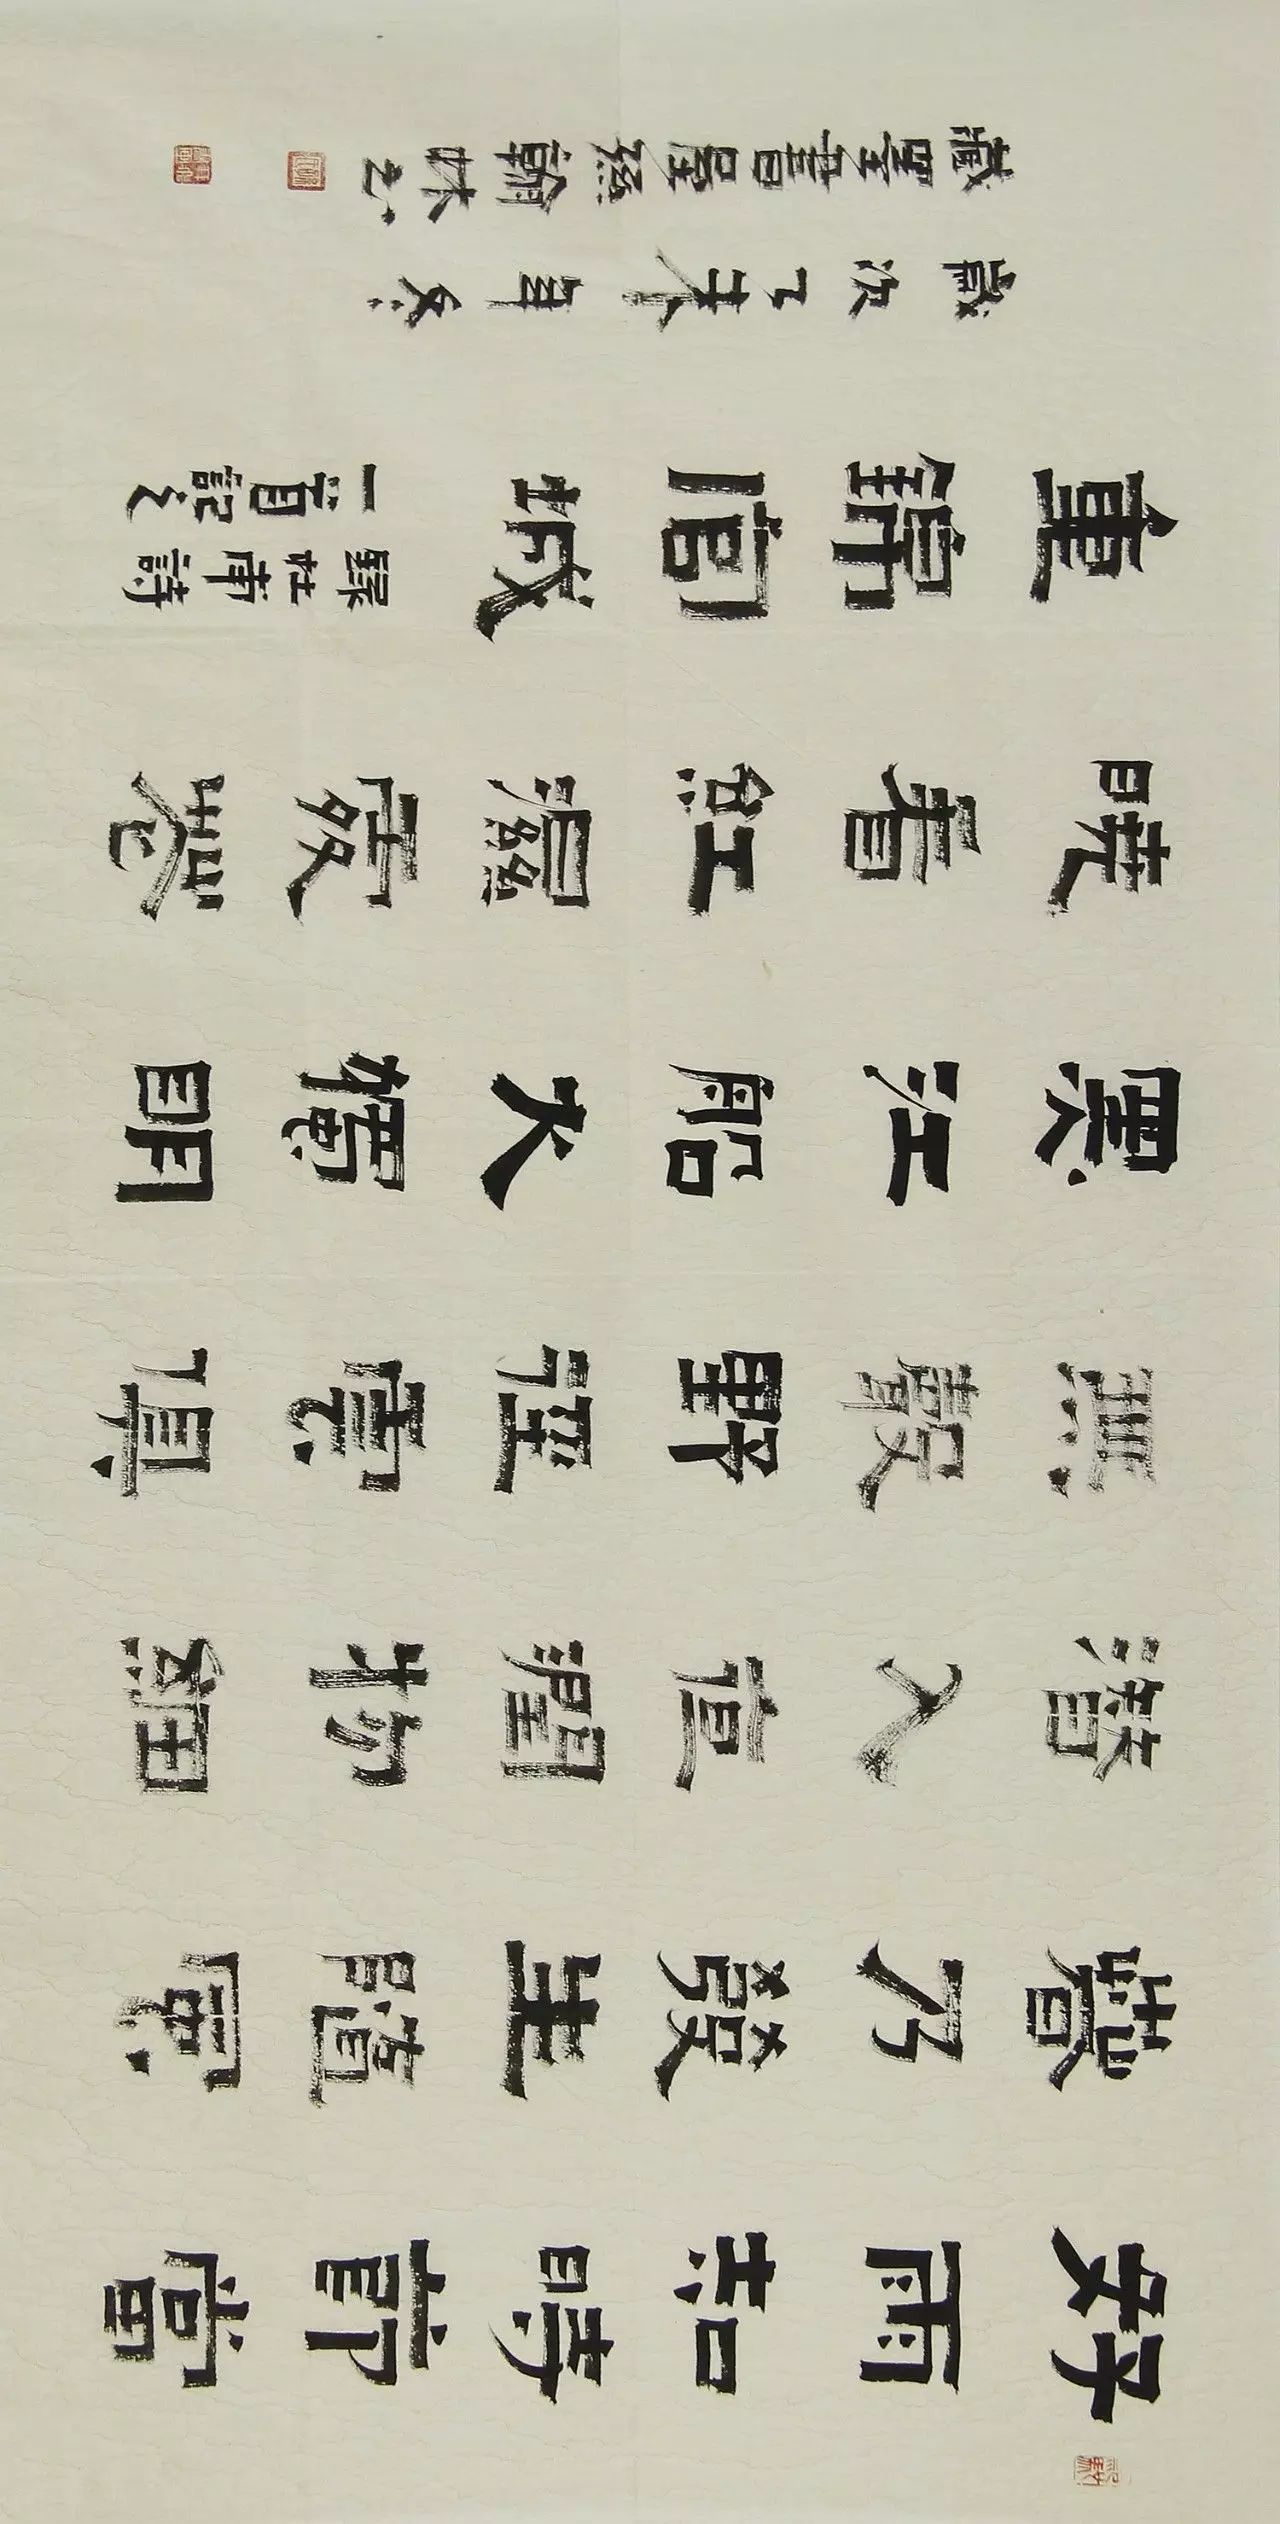 好雨知時節當
春乃發生隨風
潛入夜潤物細
無聲野徑雲俱
黑江船火獨明
曉看紅濕處花
重錦官城
錄杜甫詩
一首記之
歲次乙未年冬
藏書屋孫翰林书